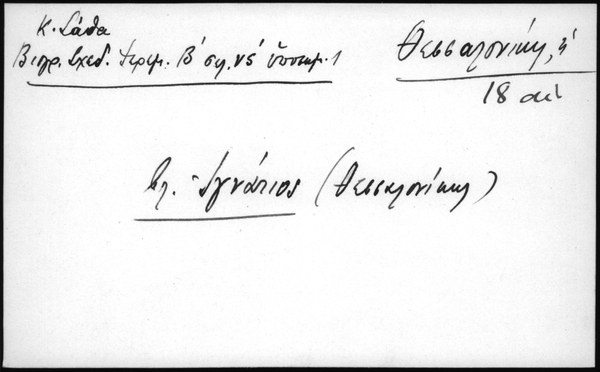 Κ. Σάθα
Βιογρ. Σχεδ. Ιερεμ. Β΄ σελ. νς΄ ὑποσημ. 1
Θεσσαλονίκη, ἡ
18 αἰ
βλ. Ἰγνάτιος (Θεσσαλονίκης)